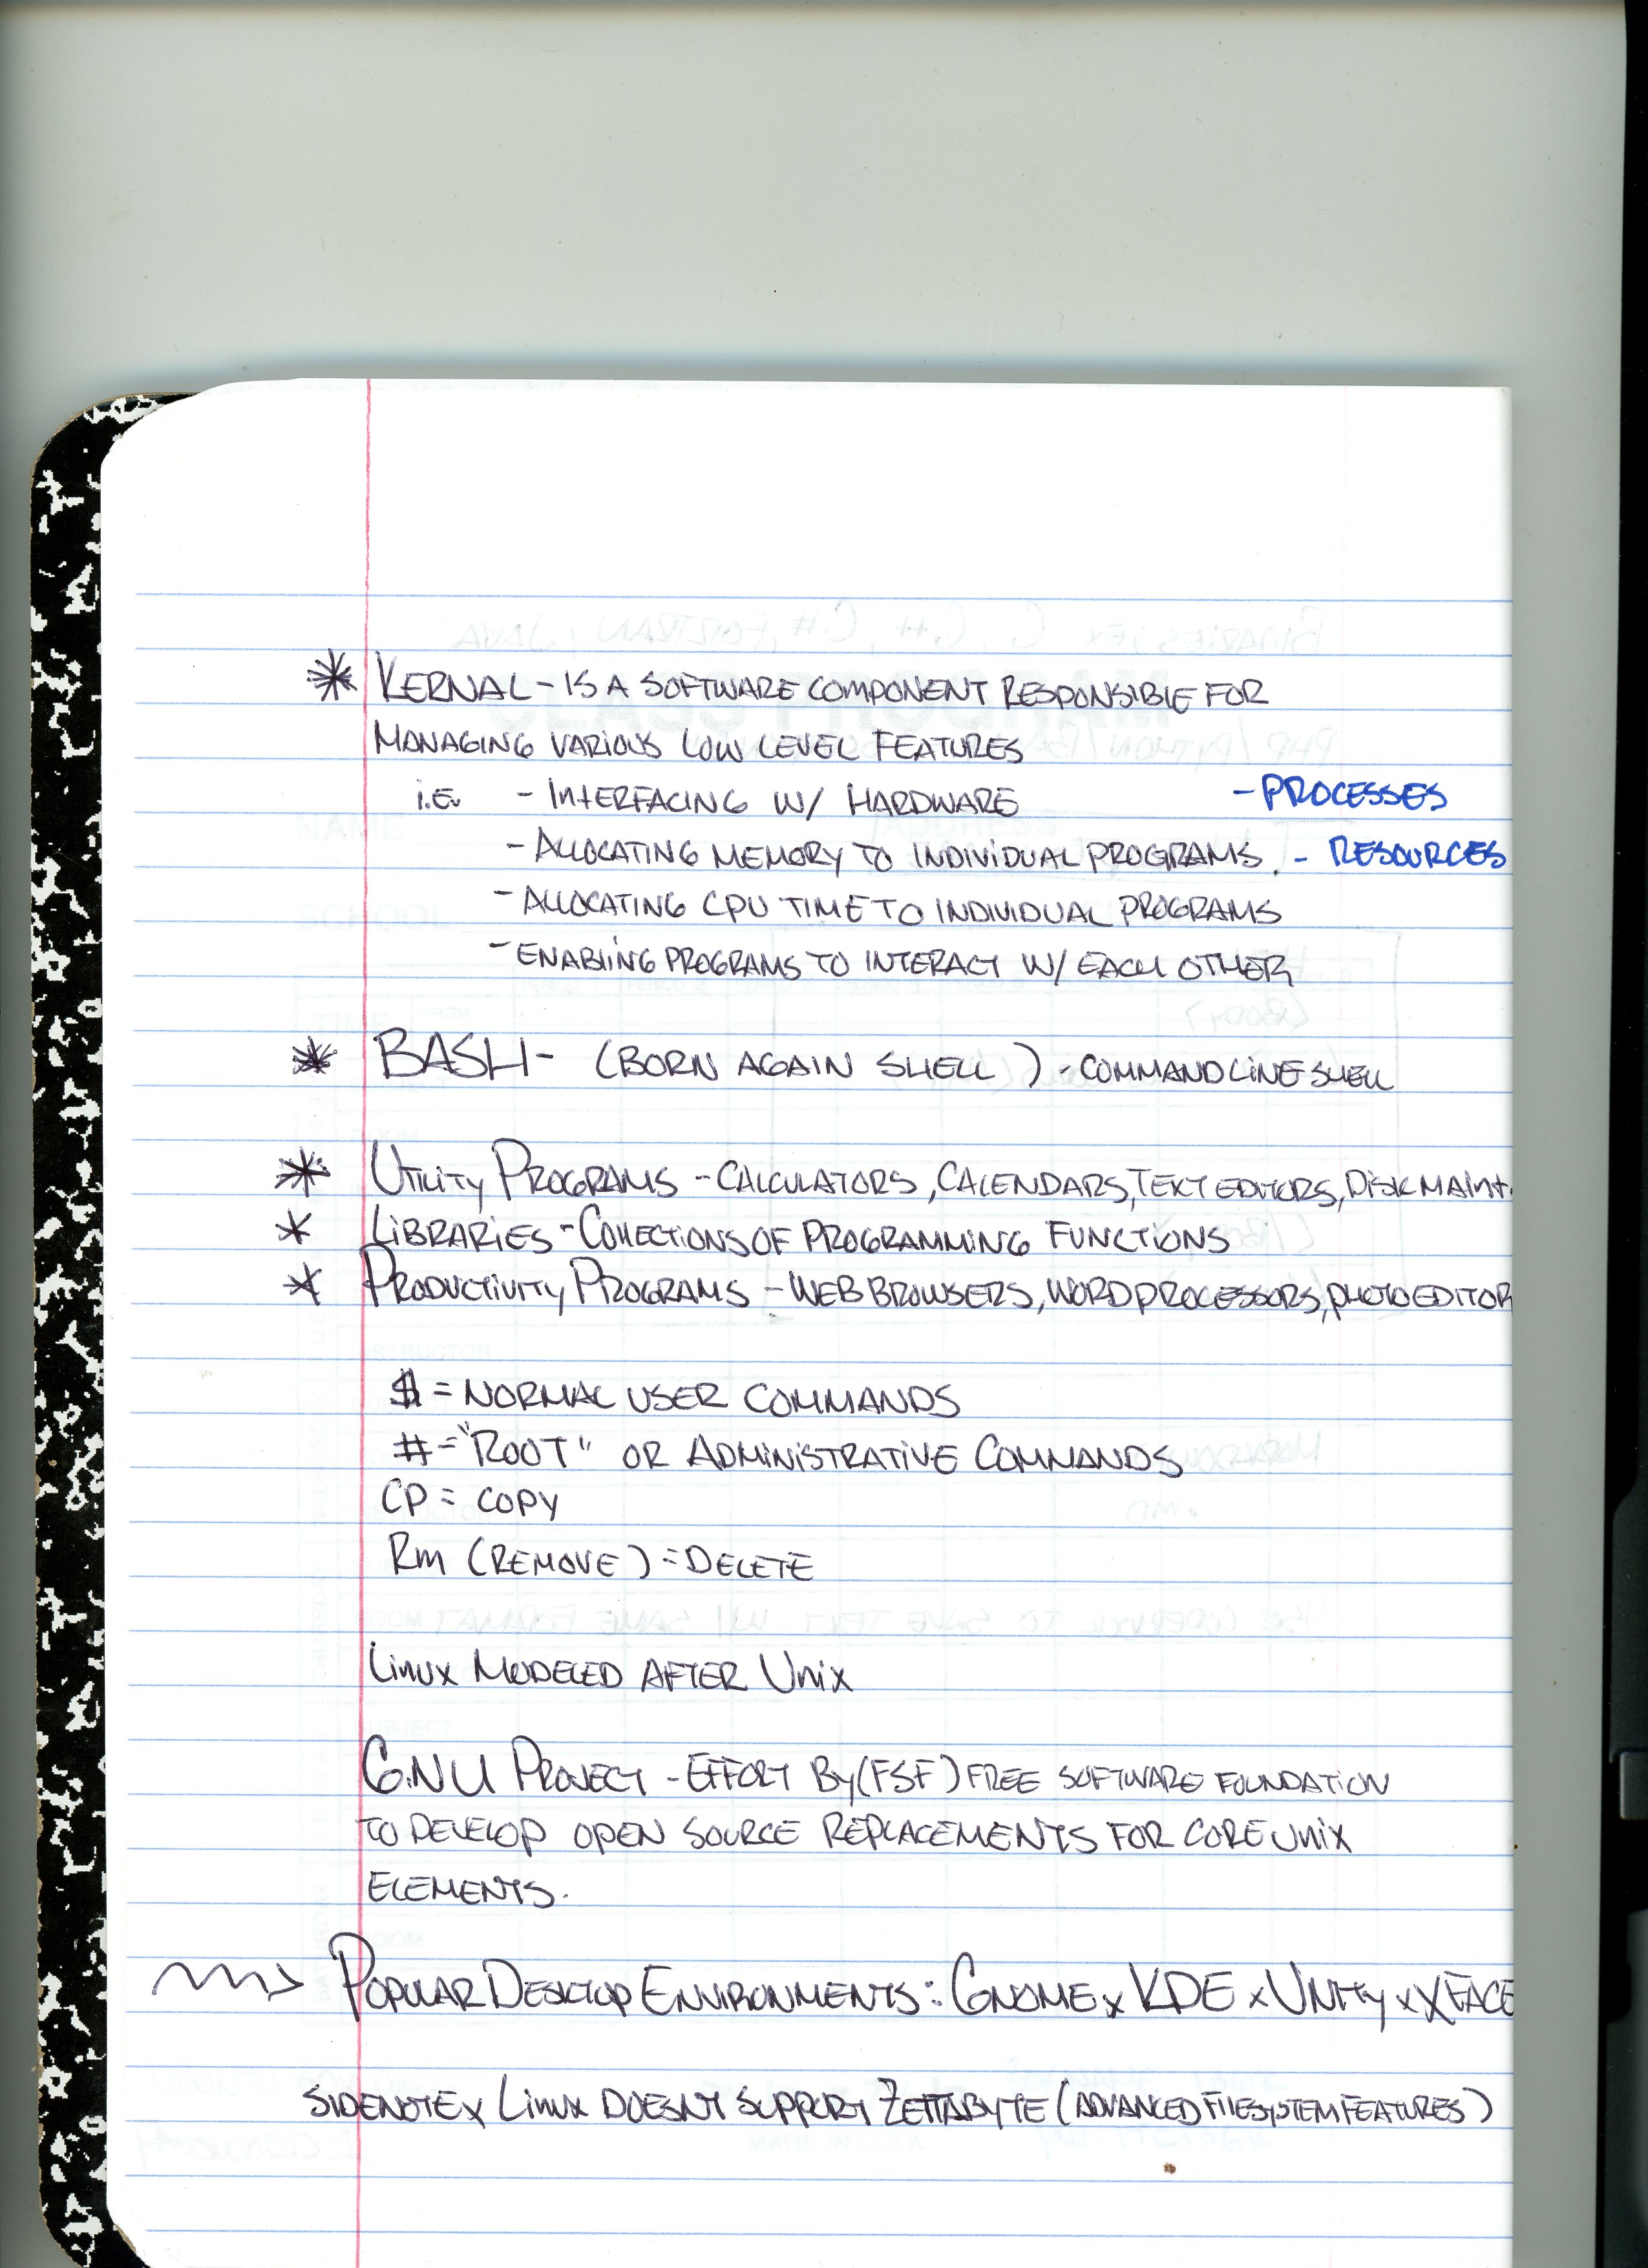 * KERNAL - IS A SOFTWARE COMPONENT RESPONSIBLE FOR
MANAGING VARIOUS LOW LEVEL FEATURES
i.e. - INTERFACING W/ HARDWARE - PROCESSES
- ALLOCATING MEMORY TO INDIVIDUAL PROGRAMS. - RESOURCES
- ALLOCATING CPU TIME TO INDIVIDUAL PROGRAMS
- ENABLING PROGRAMS TO INTERACT W/ EACH OTHER
* BASH - (BORN AGAIN SHELL) - COMMAND LINE SHELL
* UTILITY PROGRAMS - CALCULATORS, CALENDARS, TEXT EDITORS, DISK MAINT.
* LIBRARIES - COLLECTIONS OF PROGRAMMING FUNCTIONS
* PRODUCTIVITY PROGRAMS - WEB BROWSERS, WORD PROCESSORS, PHOTO EDITOR
$ = NORMAL USER COMMANDS
# = "ROOT" OR ADMINISTRATIVE COMMANDS
CP = COPY
Rm (REMOVE) = DELETE
LINUX MODELED AFTER UNIX
G.N.U PROJECT - EFFORT BY (FSF) FREE SOFTWARE FOUNDATION
TO DEVELOP OPEN SOURCE REPLACEMENTS FOR CORE UNIX
ELEMENTS.
POPULAR DESKTOP ENVIRONMENTS: GNOME x KDE x UNITY x XFACE
SIDENOTE x LINUX DOESNT SUPPORT ZETTABYTE (ADVANCED FILESYSTEM FEATURES)